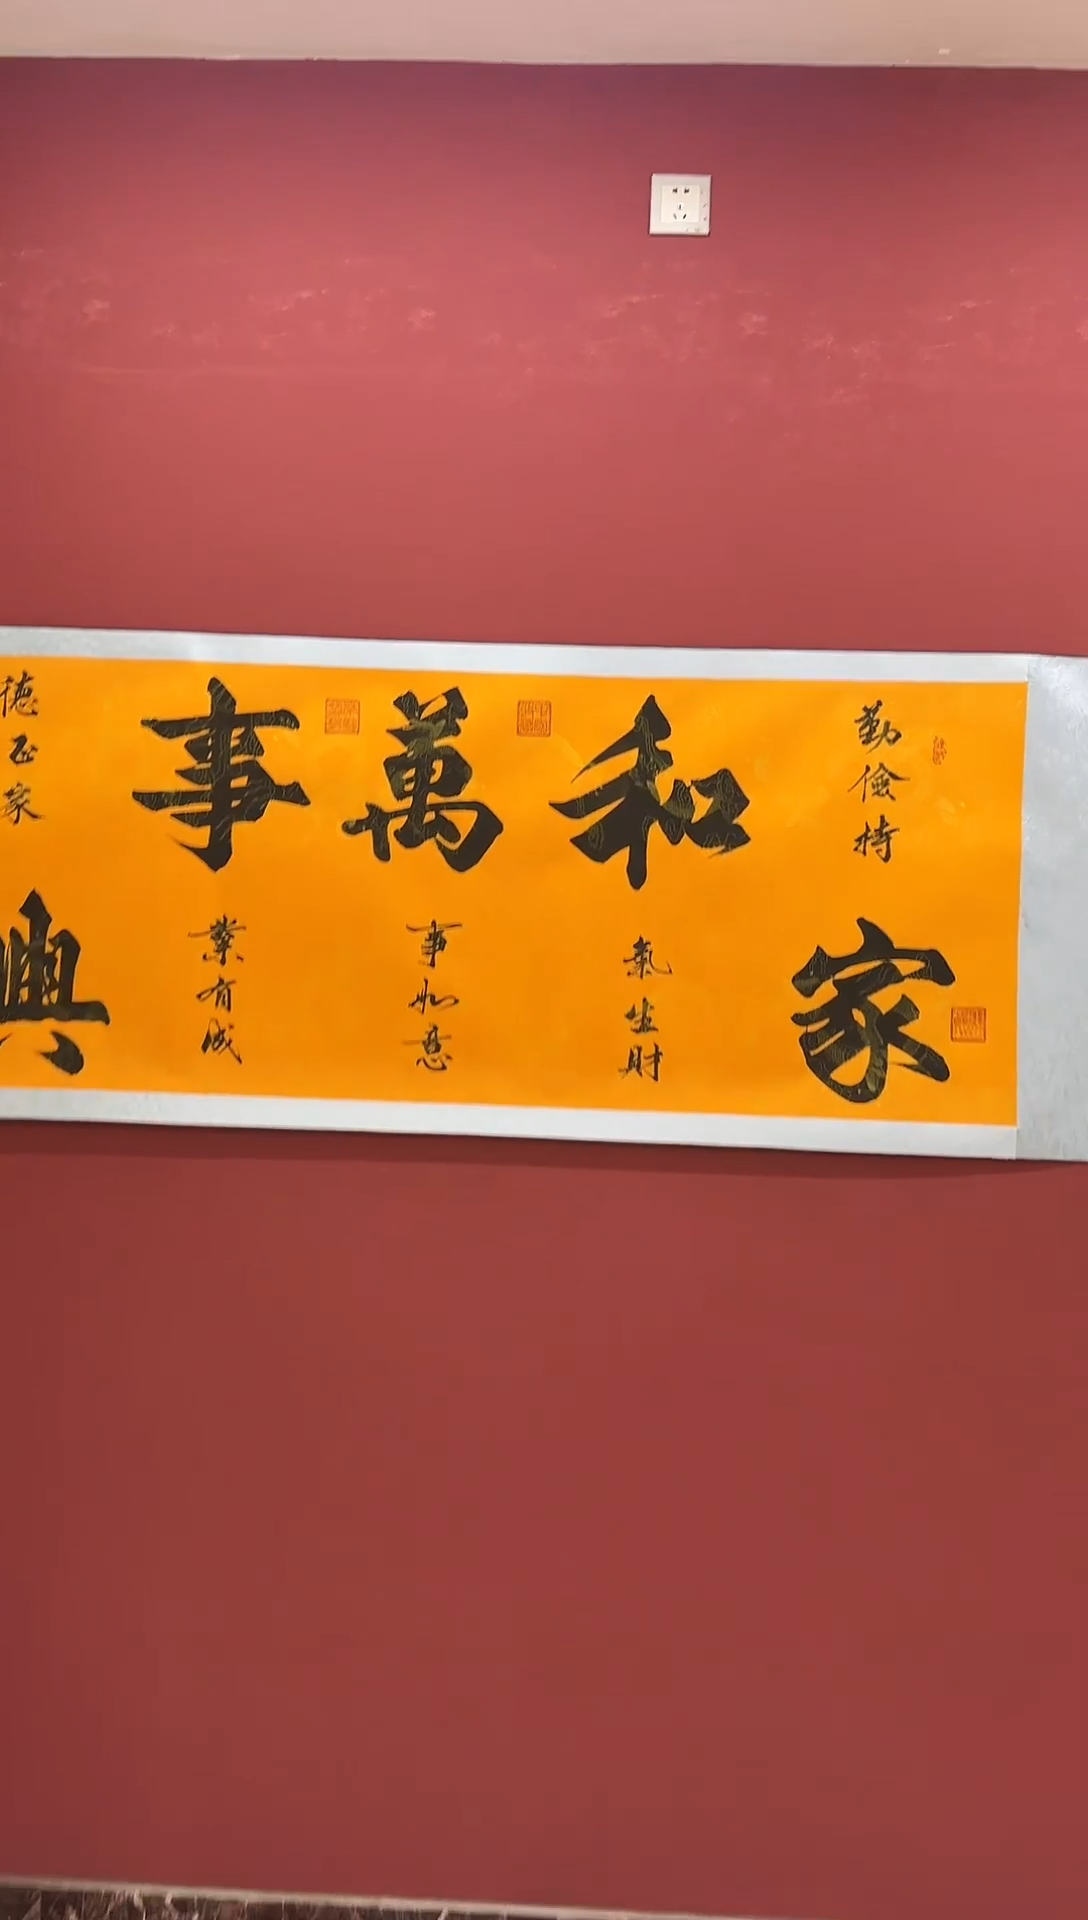 勤儉持
家
和
氣生財
萬
事如意
事
業有成
德正家
興